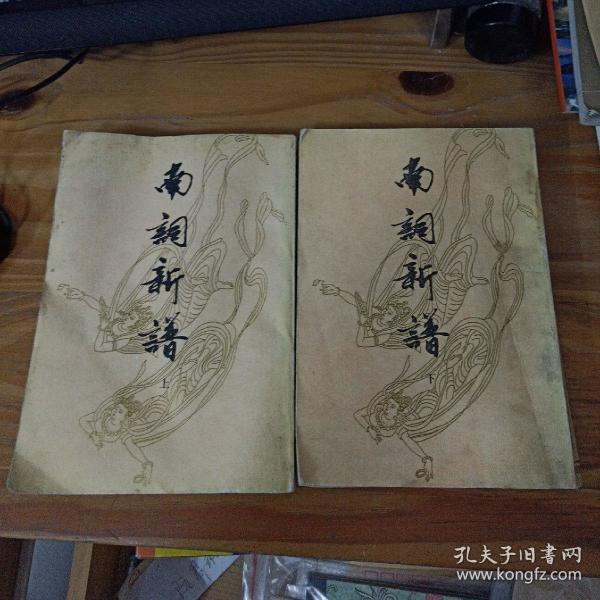 南詞新譜
上
南詞新譜
下
孔夫子旧書网
www.kongfz.com